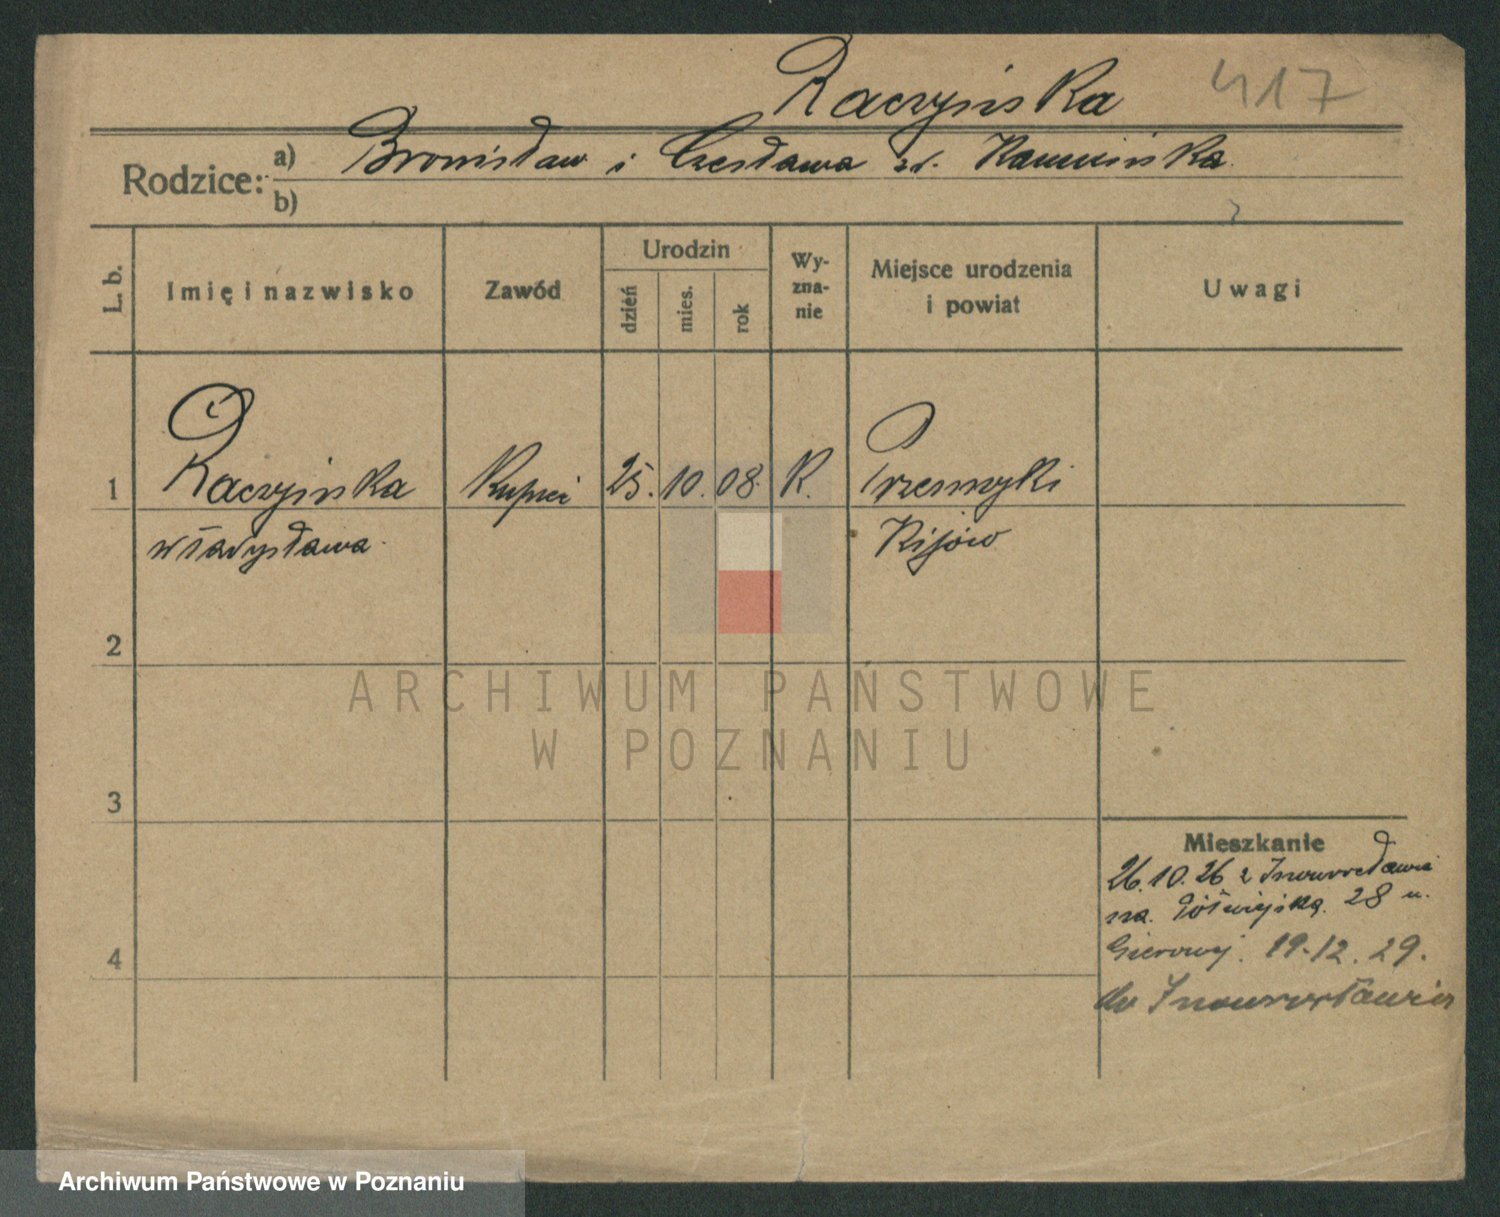 Raczyńska 417
Rodzice: a) Bronisław i Czesława zd. Kamińska
b)
L. b.
Imię i nazwisko
Zawód
Urodzin
dzień
mies.
rok
Wy-
zna-
nie
Miejsce urodzenia
i powiat
Uwagi
1 Raczyńska 25. 10. 08. K. Przesmyki
Władysława Kijów
2
ARCHIWUM PAŃSTWOWE
W POZNANIU
3
Mieszkanie
26.10.26 z Inowrocławia
na 28 u.
19.12.29.
do Inowrocławia
4
Archiwum Państwowe w Poznaniu